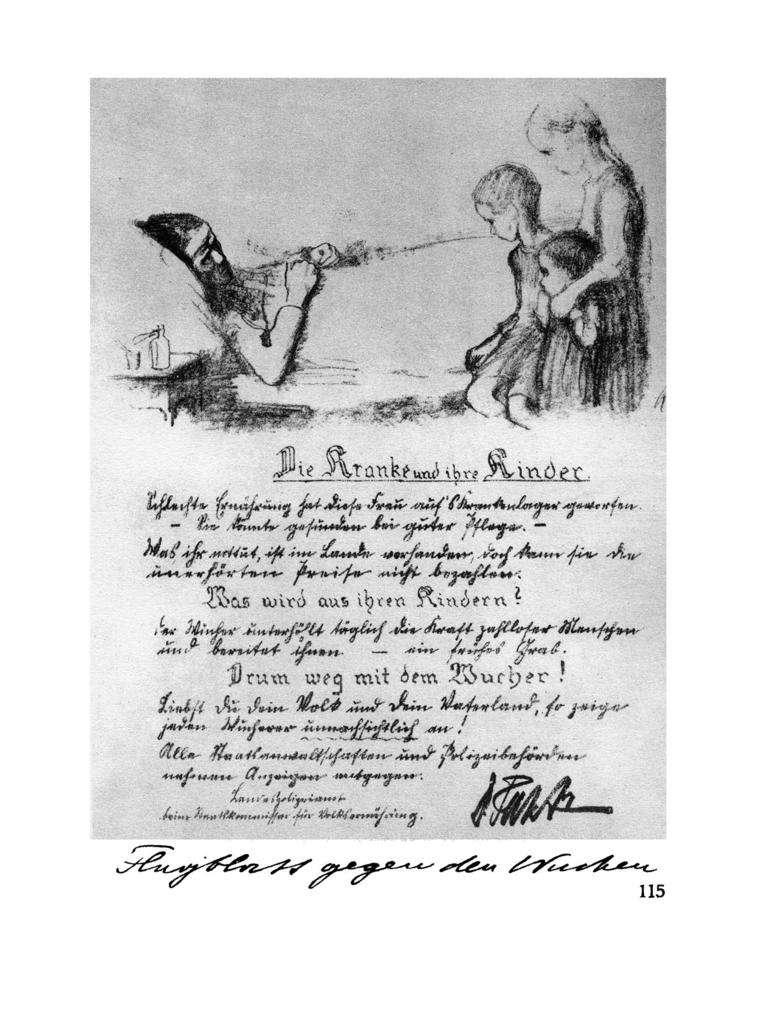 Die Kranke und ihre Kinder.
Schlechte Ernährung hat diese Frau auf's Krankenlager geworfen.
— Sie könnte gesunden bei guter Pflege. —
Was ihr nottut, ist im Lande vorhanden, doch kann sie die
unerhörten Preise nicht bezahlen.
Was wird aus ihren Kindern?
Der Wucher unterhöllt täglich die Kraft zahlloser Menschen
und bereitet ihnen — ein frühes Grab.
Drum weg mit dem Wucher!
Liebst Du Dein Volk und Dein Vaterland, so zeige
jeden Wucherer unnachsichtlich an!
Alle Staatsanwaltschaften und Polizeibehörden
nehmen Anzeigen entgegen.
Landespolizeiamt
beim Staatskommissar für Volksernährung.
Flugblatt gegen den Wucher
115